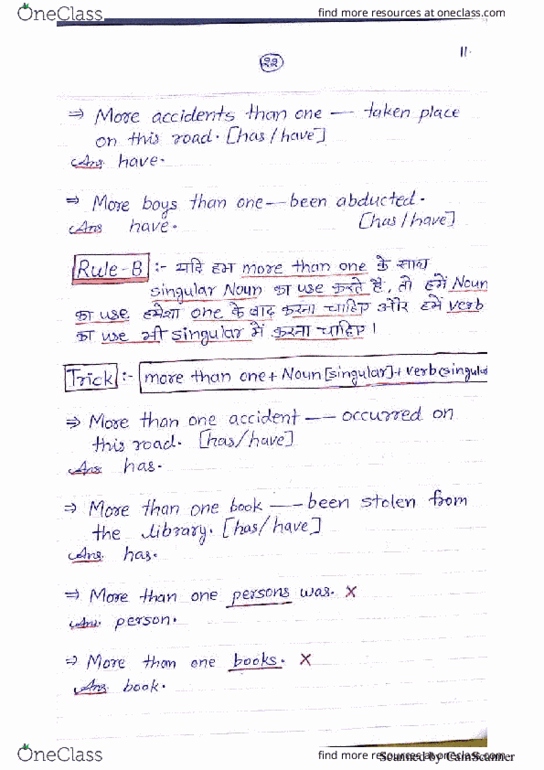 OneClass
find more resources at oneclass.com
२२
11.
⇒ More accidents than one — taken place
on this road. [has/have]
Ans have.
⇒ More boys than one — been abducted.
Ans have. [has/have]
Rule-B :- यदि हम more than one के साथ
singular Noun का use करते है, तो हमें Noun
का use हमेशा one के बाद करना चाहिए और हमें verb
का use भी singular में करना चाहिए।
Trick :- more than one + Noun [singular] + verb (singular
⇒ More than one accident — occurred on
this road. [has/have]
Ans has.
⇒ More than one book — been stolen from
the library. [has/have]
Ans. has.
⇒ More than one persons was. X
Ans. person.
⇒ More than one books. X
Ans book.
OneClass
find more resources at oneclass.com
Scanned by CamScanner